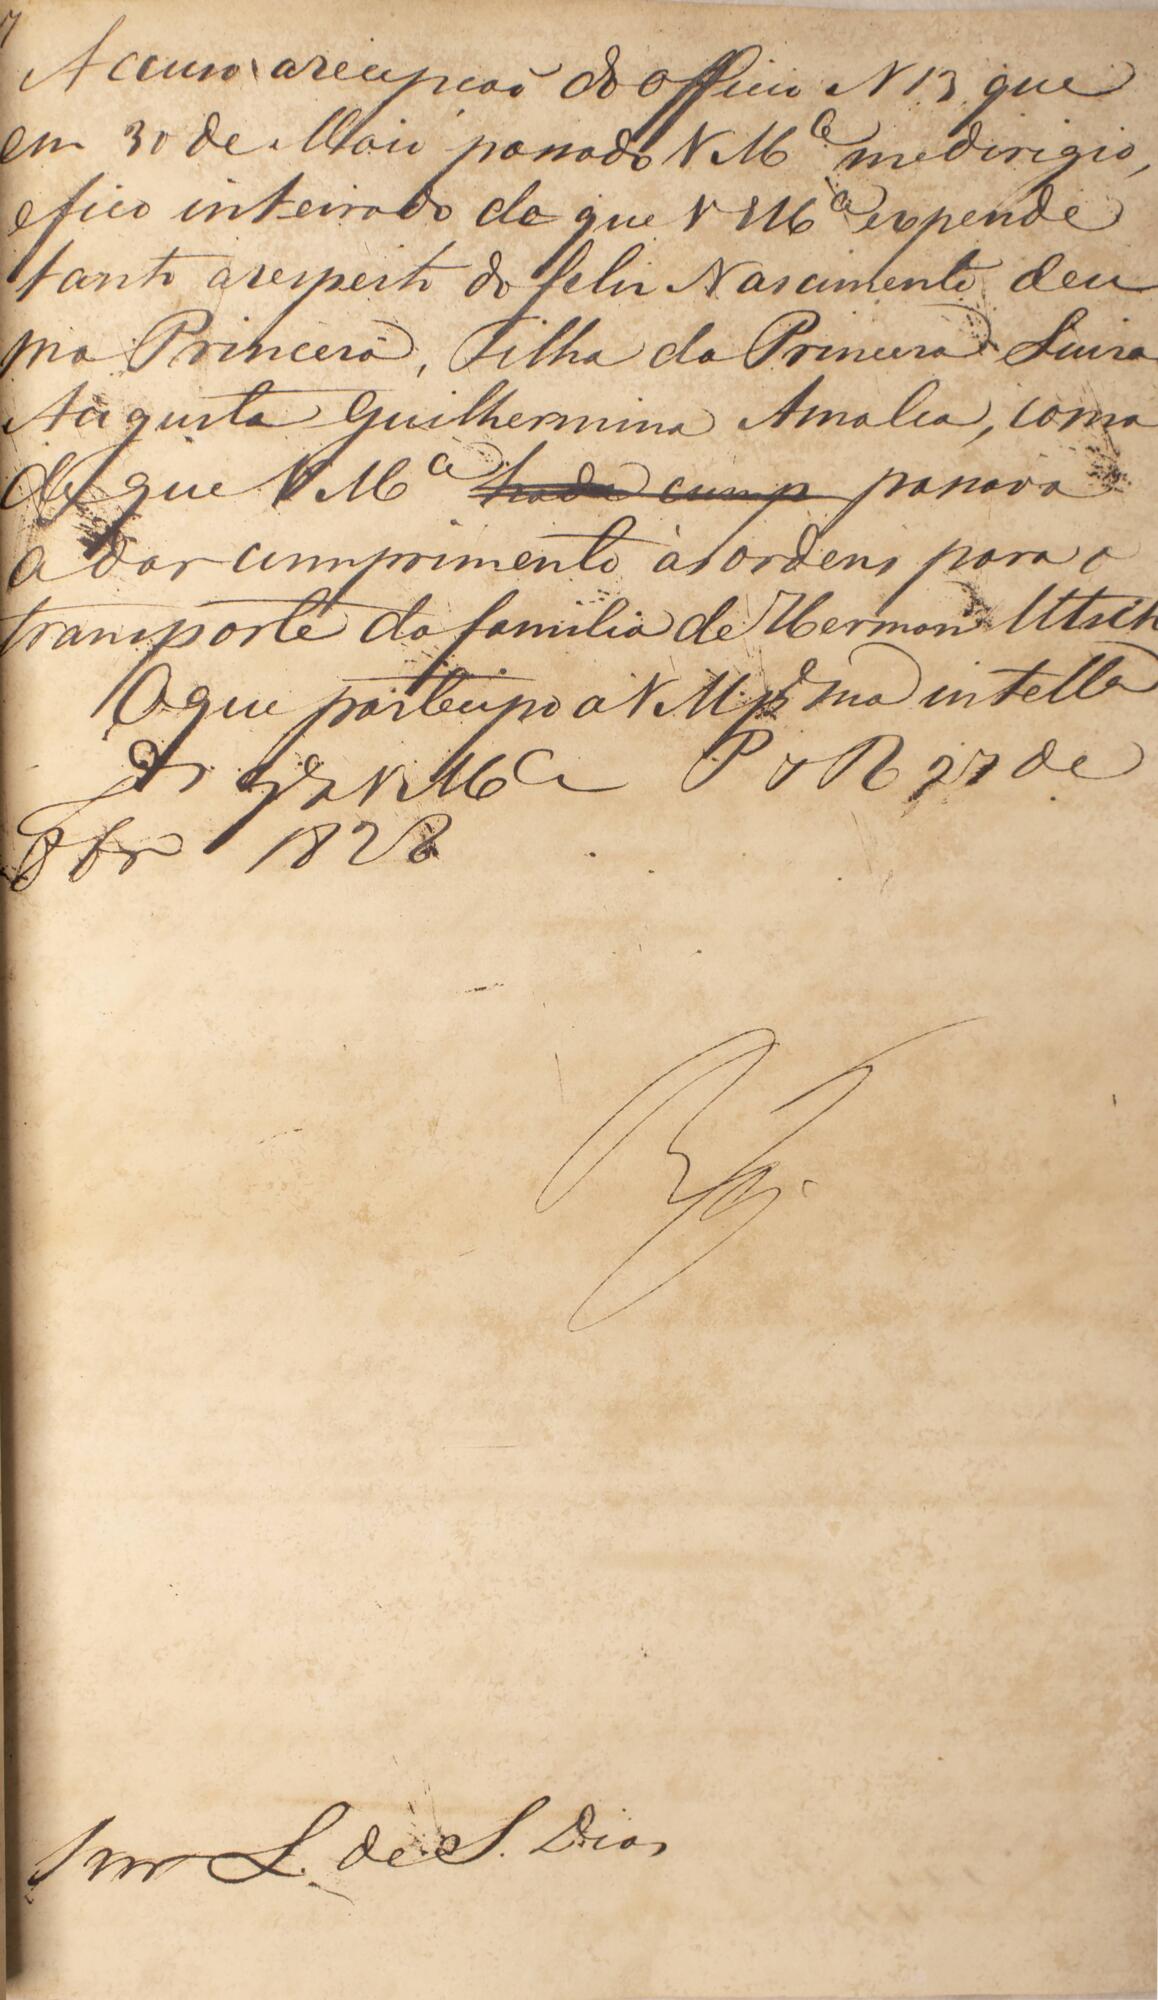 Accuso a recepção do Officio N 13 que
em 30 de Maio passado V Mce me dirigio,
e fico inteirado do que V Mce expende
tanto a respeito do feliz Nascimento de u
ma Princeza, Filha da Princeza Luiza
Augusta Guilhermina Amalia, como
de que V Mce passava
a dar cumprimento ás ordens para o
transporte da familia de Herman Utsch
O que participo a V Mce pa sua intella
Ds Gde V Mce P 27 de
8br 1828
Snr L. de S. Dias